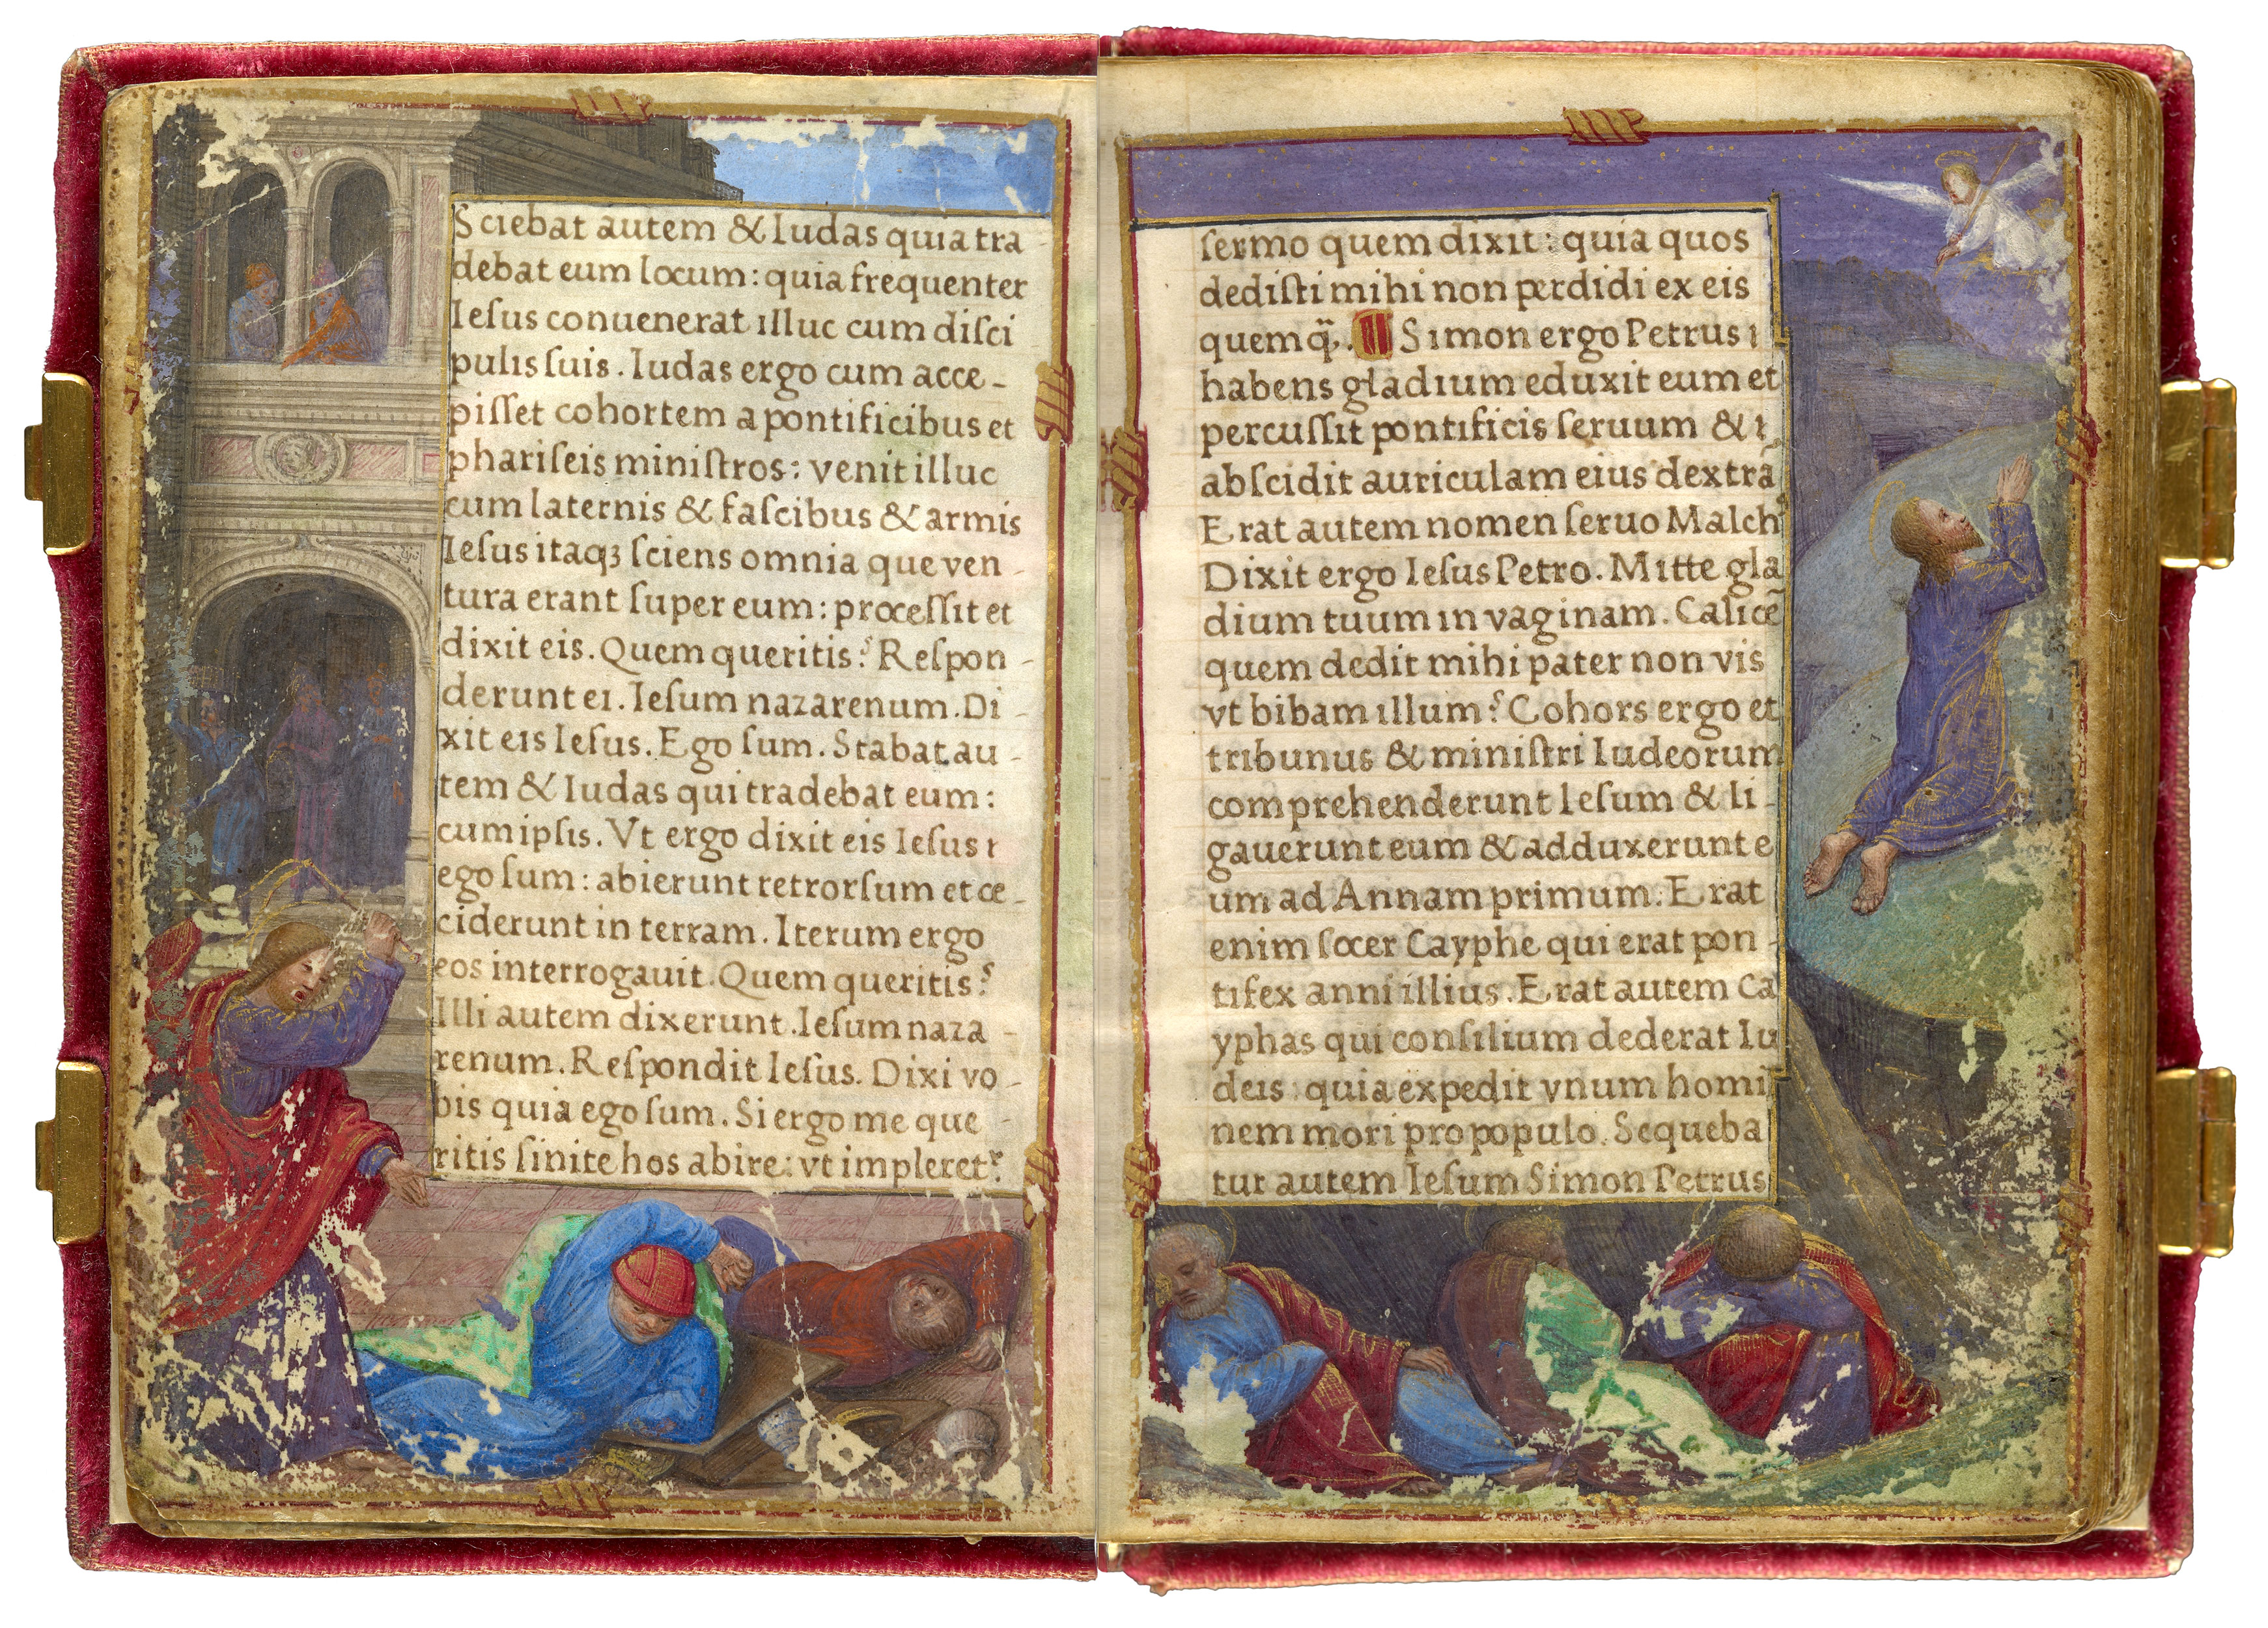 Sciebat autem & Iudas quia tra-
debat eum locum: quia frequenter
Ieſus conuenerat illuc cum diſci
pulis ſuis. Iudas ergo cum acce-
piſſet cohortem a pontificibus et
phariſeis miniſtros: venit illuc
cum laternis & faſcibus & armis
Ieſus itaqꝫ ſciens omnia que ven-
tura erant ſuper eum: proceſſit et
dixit eis. Quem queritis? Reſpon-
derunt ei. Ieſum nazarenum. Di-
xit eis Ieſus. Ego ſum. Stabat au-
tem & Iudas qui tradebat eum:
cum ipſis. Vt ergo dixit eis Ieſus
ego ſum: abierunt retrorſum et ce-
ciderunt in terram. Iterum ergo
eos interrogauit. Quem queritis?
Illi autem dixerunt. Ieſum naza-
renum. Reſpondit Ieſus. Dixi vo-
bis quia ego ſum. Si ergo me que-
ritis ſinite hos abire: vt impleretʳ
ſermo quem dixit: quia quos
dediſti mihi non perdidi ex eis
quemq̈. Simon ergo Petrus
habens gladium eduxit eum et
percuſſit pontificis ſeruum &
abſcidit auriculam eius dextrã
Erat autem nomen ſeruo Malchꝰ
Dixit ergo Ieſus Petro. Mitte gla
dium tuum in vaginam. Calicẽ
quem dedit mihi pater non vis
vt bibam illum? Cohors ergo et
tribunus & miniſtri Iudeorum
comprehenderunt Ieſum & li-
gauerunt eum & adduxerunt e
um ad Annam primum. Erat
enim ſocer Cayphe qui erat pon-
tifex anni illius. Erat autem Ca
yphas qui conſilium dederat Iu
deis: quia expedit vnum homi
nem mori pro populo. Sequeba
tur autem Ieſum Simon Petrus